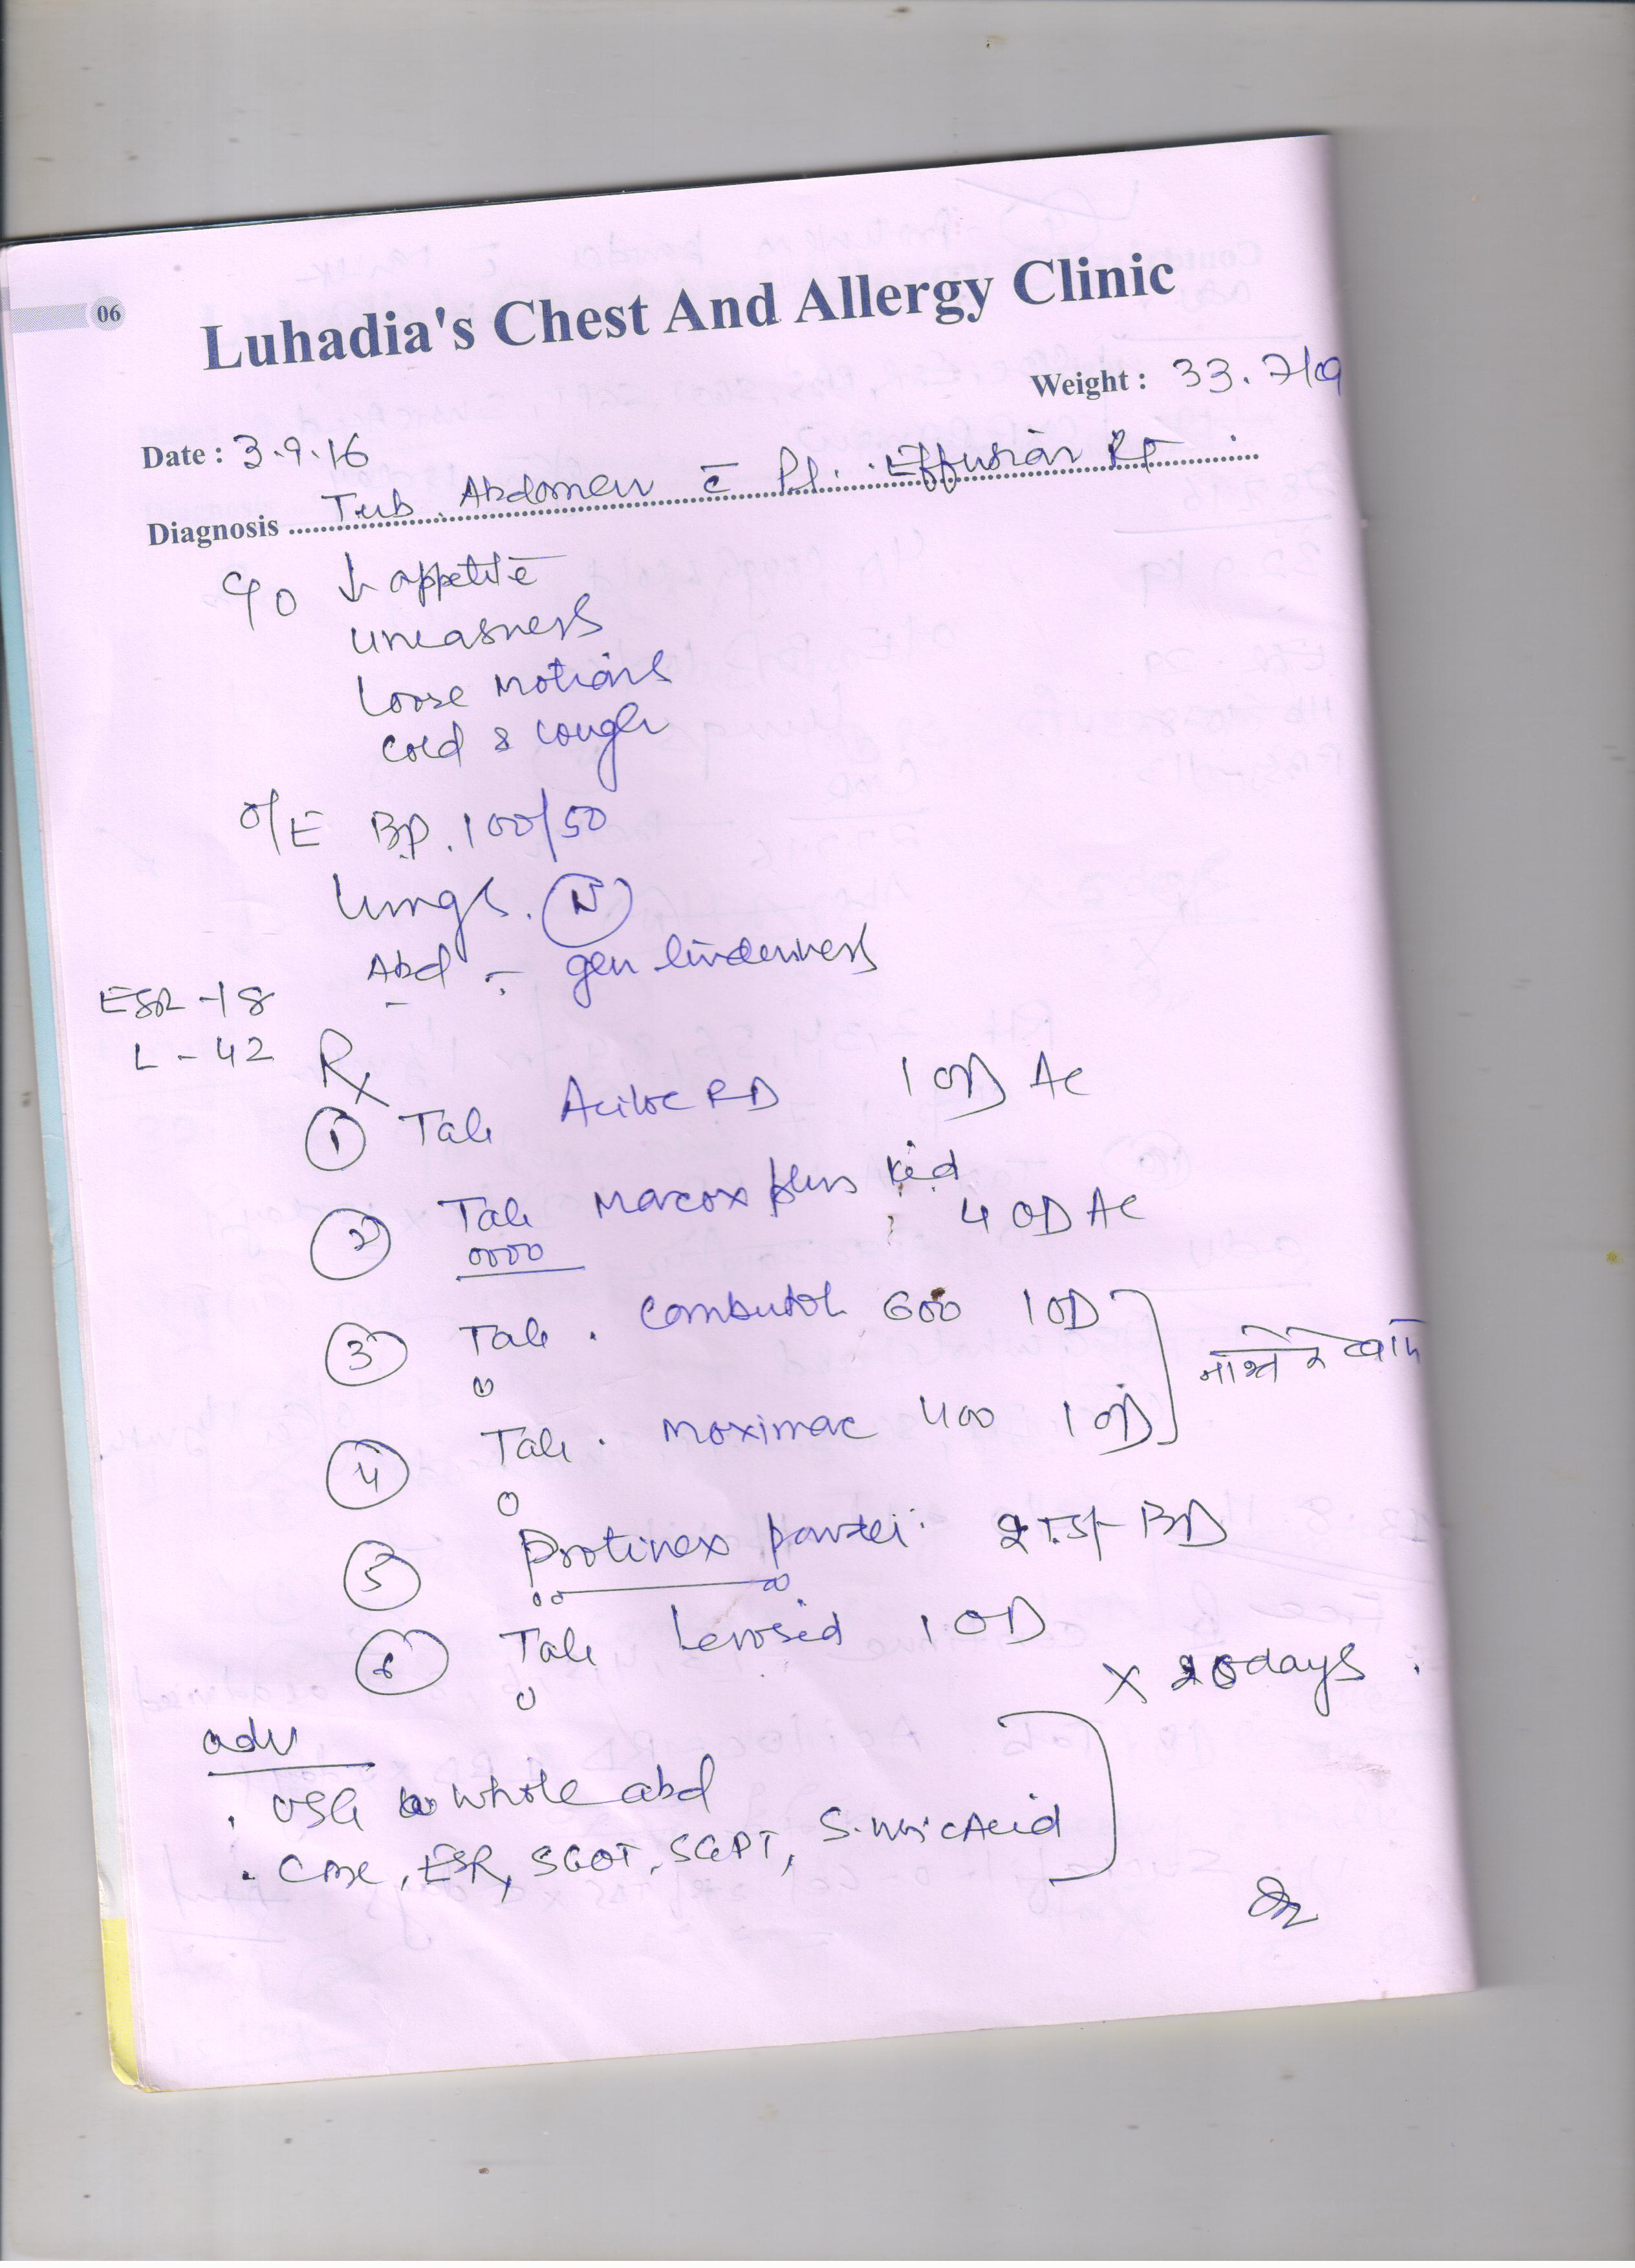 06
Luhadia's Chest And Allergy Clinic
Weight : 33.7kg
Date : 3.9.16
Diagnosis Tub. Abdomen c̄ Pl. Effusion Rt
C/o ↓ appetite
uneasness
Loose motions
cold & cough
O/E BP. 100/50
Lungs. N
Abd - gen tenderness
ESR - 18
L - 42
Rx
1 Tab Aciloc RD 1 OD AC
2 Tab Marcox plus kid 4 OD AC
0000
3 Tab. Combutol 600 1 OD
नाश्ते के बाद
4 Tab. Moximac 400 1 OD
5 Protinex powder 2 TSF BD
6 Tab Levosid 1 OD
X days
adv
. USG whole abd
. CBC, ESR, SGOT, SGPT, S. Uric Acid